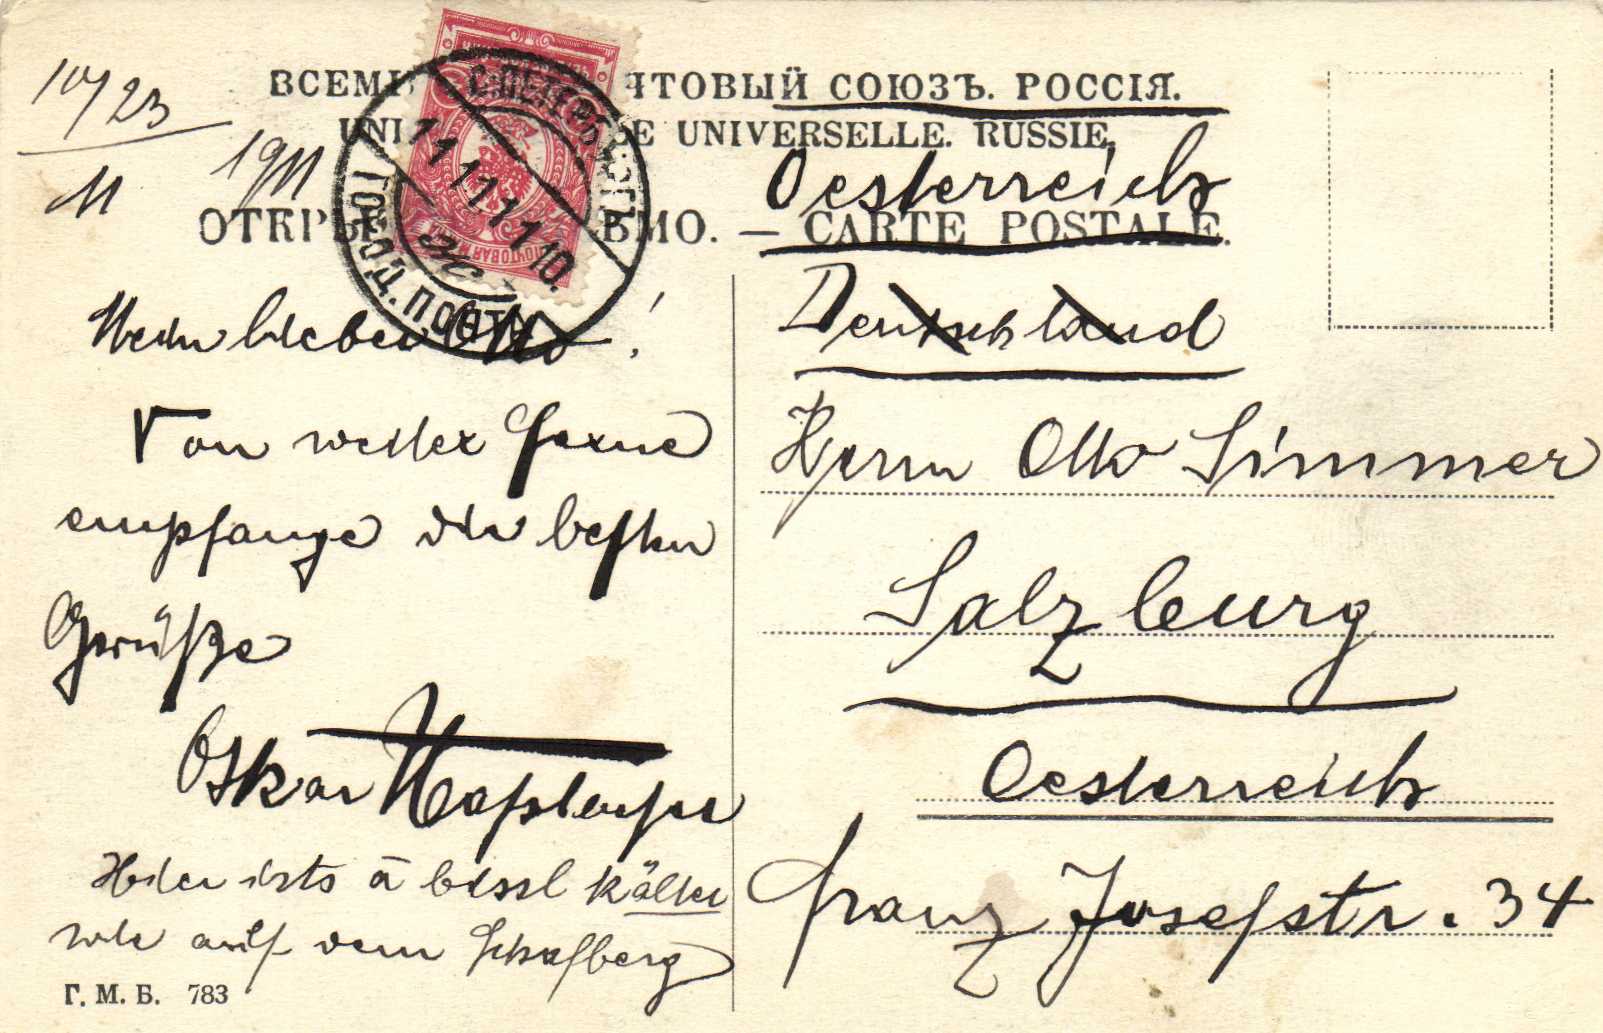 ВСЕМИ ЧТОВЫЙ СОЮЗЪ. РОССІЯ.
UNI E UNIVERSELLE. RUSSIE.
ОТКРЫ ЬМО. — CARTE POSTALE.
10/23
11 1911
С.ПЕТЕРБУРГЪ
11 11 11 10.
ГОРОД. ПОЧТА
ПОЧТОВАЯ М
Oesterreich
Deutschland
Mein lieber Otto!
Von weiter Ferne
empfange die besten
Grüße
Oskar
Hier ists a bissl kälter
wie auf dem Schafberg
Herrn Otto Simmer
Salzburg
Oesterreich
Franz Josefstr. 34
Г. М. Б. 783